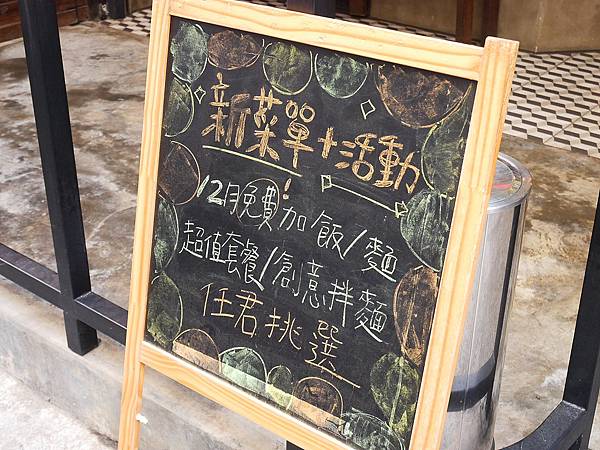 新菜單+活動!
12月免費加飯/麵
超值套餐/創意拌麵
任君挑選